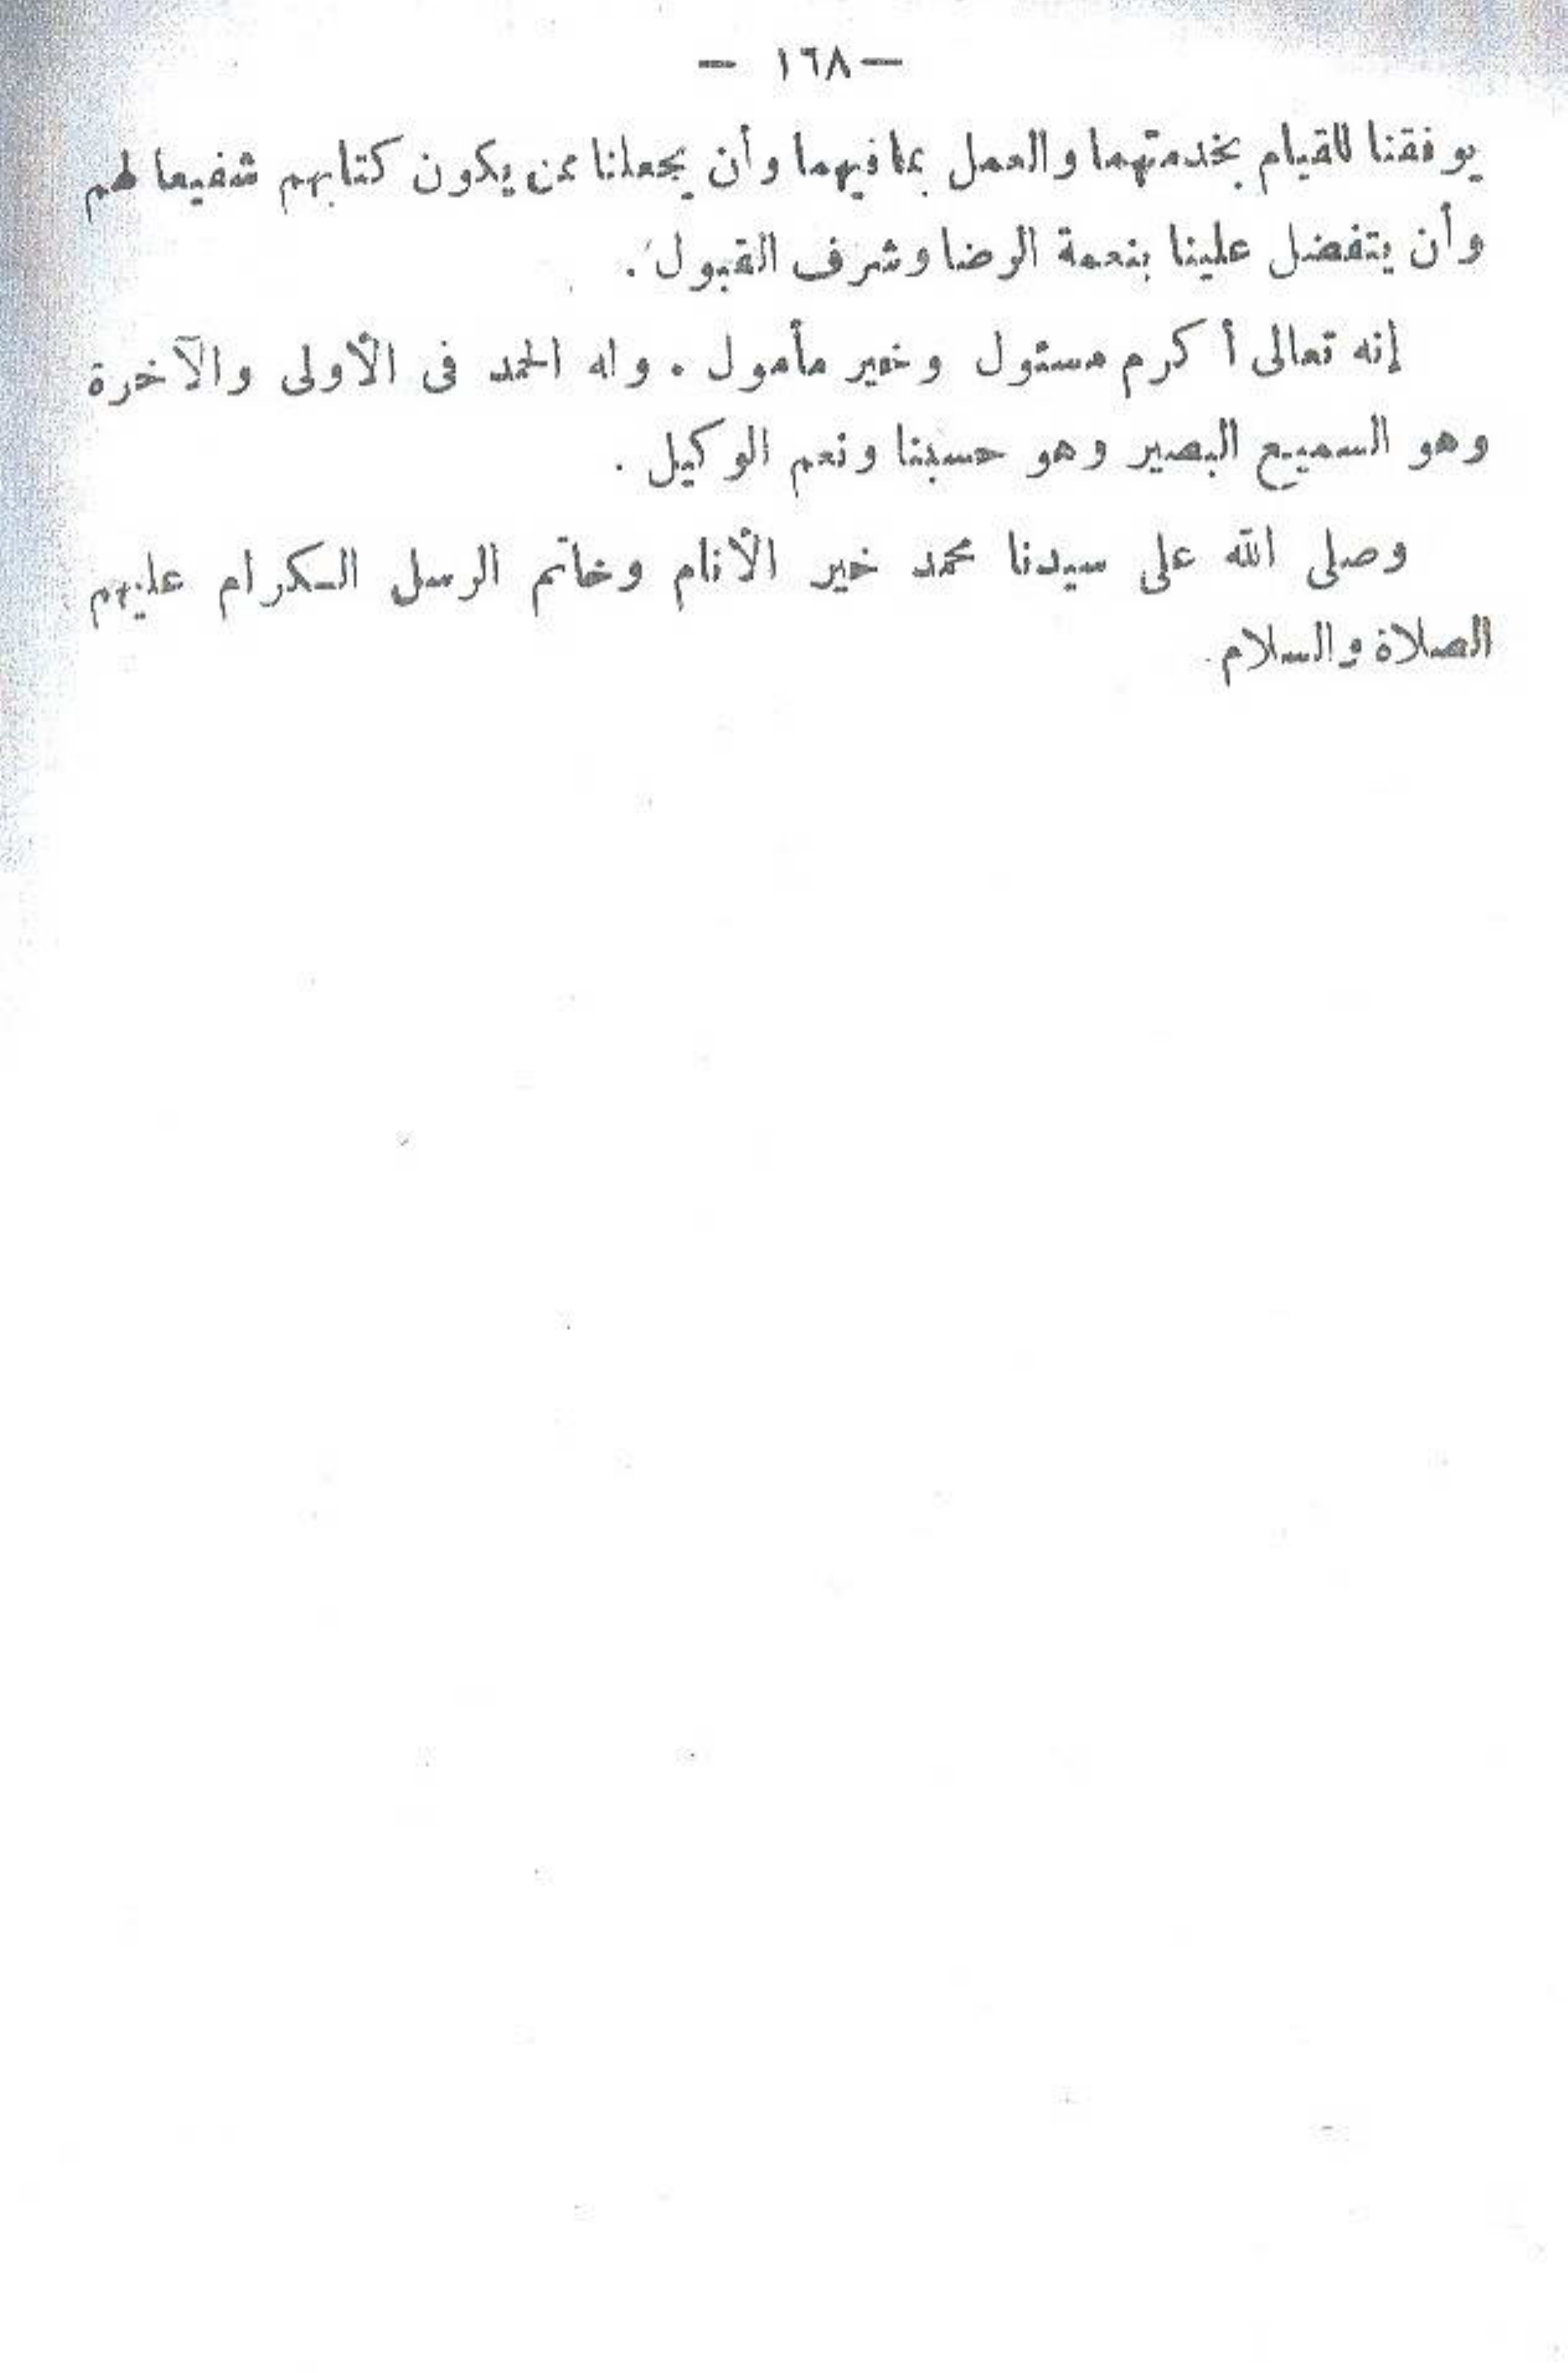 — ١٦٨ —
يوفقنا للقيام بخدمتهما والعمل بما فيهما وأن يجعلنا ممن يكون كتابهم شفيعا لهم
وأن يتفضل علينا بنعمة الرضا وشرف القبول .
إنه تعالى أكرم مسئول وخير مأمول . وله الحمد فى الأولى والآخرة
وهو السميع البصير وهو حسبنا ونعم الوكيل .
وصلى الله على سيدنا محمد خير الأنام وخاتم الرسل الكرام عليهم
الصلاة والسلام .